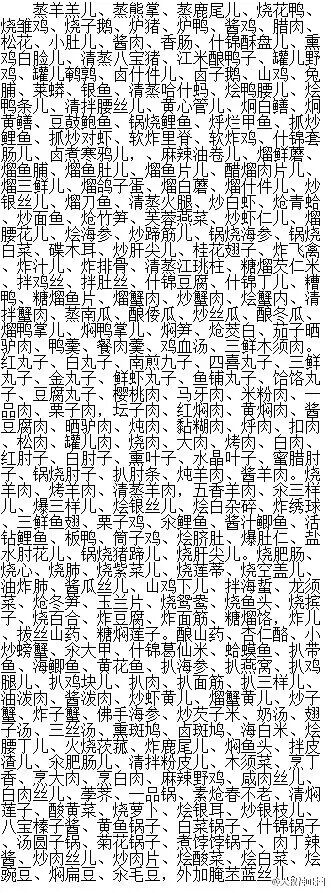 蒸羊羔儿、蒸熊掌、蒸鹿尾儿、烧花鸭、
烧雏鸡、烧子鹅、炉猪、炉鸭、酱鸡、腊肉、
松花、小肚儿、酱肉、香肠、什锦酥盘儿、熏
鸡白脸儿、清蒸八宝猪、江米酿鸭子、罐儿野
鸡、罐儿鹌鹑、卤什件儿、卤子鹅、山鸡、兔
脯、莱蟒、银鱼、清蒸哈什蚂、烩鸭腰儿、烩
鸭条儿、清拌腰丝儿、黄心管儿、焖白鳝、焖
黄鳝、豆鼓鲍鱼、锅烧鲤鱼、烀烂甲鱼、抓炒
鲤鱼、抓炒对虾、软炸里脊、软炸鸡、什锦套
肠儿、卤煮寒鸦儿，、麻辣油卷儿、熘鲜蘑、
熘鱼脯、熘鱼肚儿、熘鱼片儿、醋熘肉片儿、
熘三鲜儿、熘鸽子蛋、熘白蘑、熘什件儿、炒
银丝儿、熘刀鱼、清蒸火腿、炒白虾、炝青蛤
、炒面鱼、炝竹笋、芙蓉燕菜、炒虾仁儿、熘
腰花儿、烩海参、炒蹄筋儿、锅烧海参、锅烧
白菜、碟木耳、炒肝尖儿、桂花翅子、炸飞禽
、炸汁儿、炸排骨、清蒸江珧柱、糖熘芡仁米
、拌鸡丝、拌肚丝、什锦豆腐、什锦丁儿、糟
鸭、糖熘鱼片、熘蟹肉、炒蟹肉、烩蟹肉、清
拌蟹肉、蒸南瓜、酿倭瓜、炒丝瓜、酿冬瓜、
熘鸭掌儿、焖鸭掌儿、焖笋、炝茭白、茄子晒
驴肉、鸭羹、餐肉羹、鸡血汤、三鲜木须肉、
红丸子、白丸子、南煎丸子、四喜丸子、三鲜
丸子、金丸子、鲜虾丸子、鱼铺丸子、饸饹丸
子、豆腐丸子、樱桃肉、马牙肉、米粉肉、一
品肉、栗子肉，坛子肉、红焖肉、黄焖肉、酱
豆腐肉、晒驴肉、炖肉、黏糊肉、烀肉、扣肉
、松肉、罐儿肉、烧肉、大肉、烤肉、白肉、
红肘子、白肘子、熏叶子、水晶叶子、蜜腊肘
子、锅烧肘子、扒肘条、炖羊肉、酱羊肉。烧
羊肉、烤羊肉、清蒸羊肉，五香羊肉、氽三样
儿、爆三样儿、烩银丝儿、烩白杂碎、炸绣球
、三鲜鱼翅、栗子鸡、氽鲤鱼、酱汁鲫鱼、活
钻鲤鱼、板鸭、筒子鸡、烩脐肚、爆肚仁、盐
水肘花儿、锅烧猪蹄、烧肝尖儿。烧肥肠、
烧心、烧肺、烧紫菜儿、烧莲蒂、烧空盖儿、
油炸肺、酱瓜丝儿、山鸡丁儿、拌海蜇、龙须
菜、炝冬笋、玉兰片、烧鸳鸯、烧鱼头、烧摈
子、烧百合、炸豆腐、炸面筋、糖熘饹、炸儿
、拔丝山药、糖焖莲子。酿山药、杏仁酪、小
炒螃蟹、氽大甲、什锦葛仙米、蛤蟆鱼、扒带
鱼、海鲫鱼、黄花鱼、扒海参、扒燕窝、扒鸡
腿儿、扒鸡块儿、扒肉、扒面筋、扒三样儿、
油泼肉、酱泼肉、炒虾黄儿、熘蟹黄儿，炒子
蟹、炸子蟹、佛手海参、炒茨子米、奶汤、翅
子汤、三丝汤、熏斑鸠、卤斑鸠、海白米、烩
腰丁儿、火烧茨菰、炸鹿尾儿、焖鱼头、拌皮
渣儿、氽肥肠儿、清拌粉皮儿、木须菜、烹丁
香、烹大肉、烹白肉、麻辣野鸡、咸肉丝儿、
白肉丝儿、荸荠、一品锅、素炝春不老、清焖
莲子、酸黄菜、烧萝卜、烩银耳、炒银枝儿、
八宝榛子酱、黄鱼锅子、白菜锅子、什锦锅子
、汤圆子锅、菊花锅子、煮饽饽锅子、肉丁辣
酱、炒肉丝儿、炒肉片、烩酸菜、烩白菜、烩
豌豆、焖扁豆、氽毛豆，外加腌苤蓝丝儿